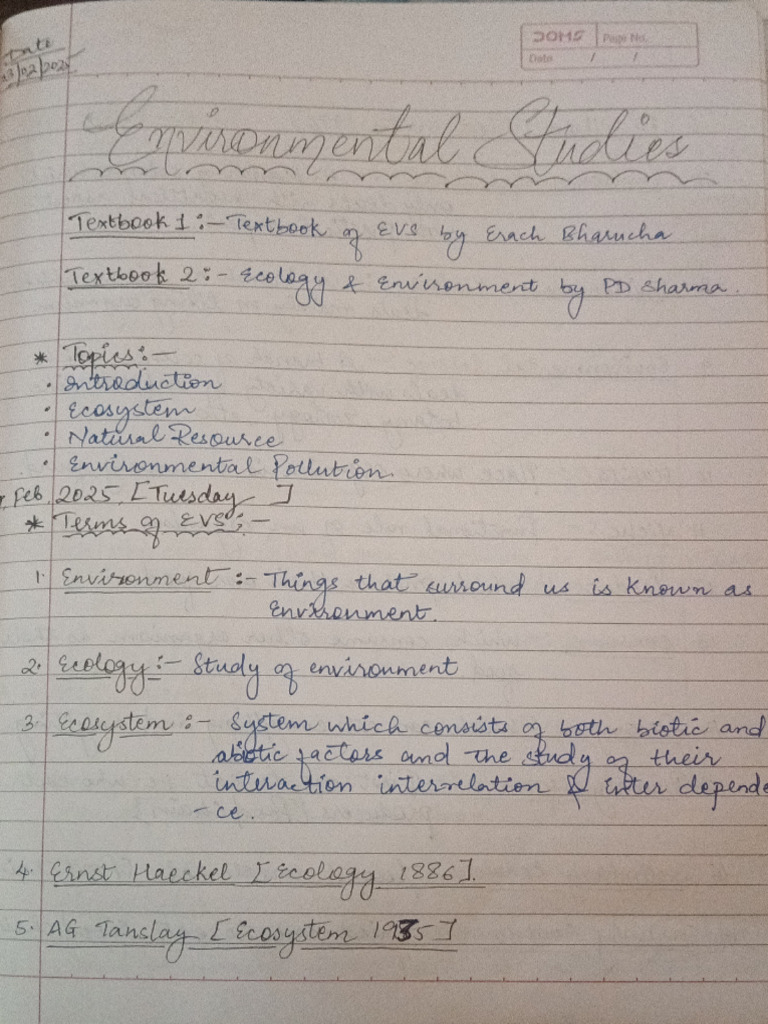 Date
23/02/2025
DOMS Page No.
Date / /
Environmental Studies
Textbook 1 :- Textbook of EVS by Erach Bharucha
Textbook 2 :- Ecology & Environment by PD Sharma.
* Topics :-
· Introduction
· Ecosystem
· Natural Resource
· Environmental Pollution.
Feb, 2025 [Tuesday ]
* Terms of EVS :-
1. Environment :- Things that surround us is known as
Environment.
2. Ecology :- Study of environment
3. Ecosystem :- System which consists of both biotic and
abiotic factors and the study of their
interaction interrelation & inter depende
-ce.
4. Ernst Haeckel [Ecology 1886].
5. AG Tanslay [Ecosystem 1935]